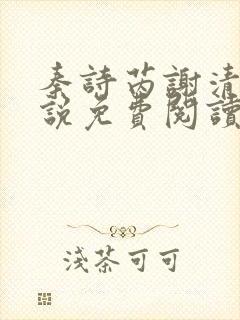 秦詩茵謝清
說免費閱讀
淺茶可可